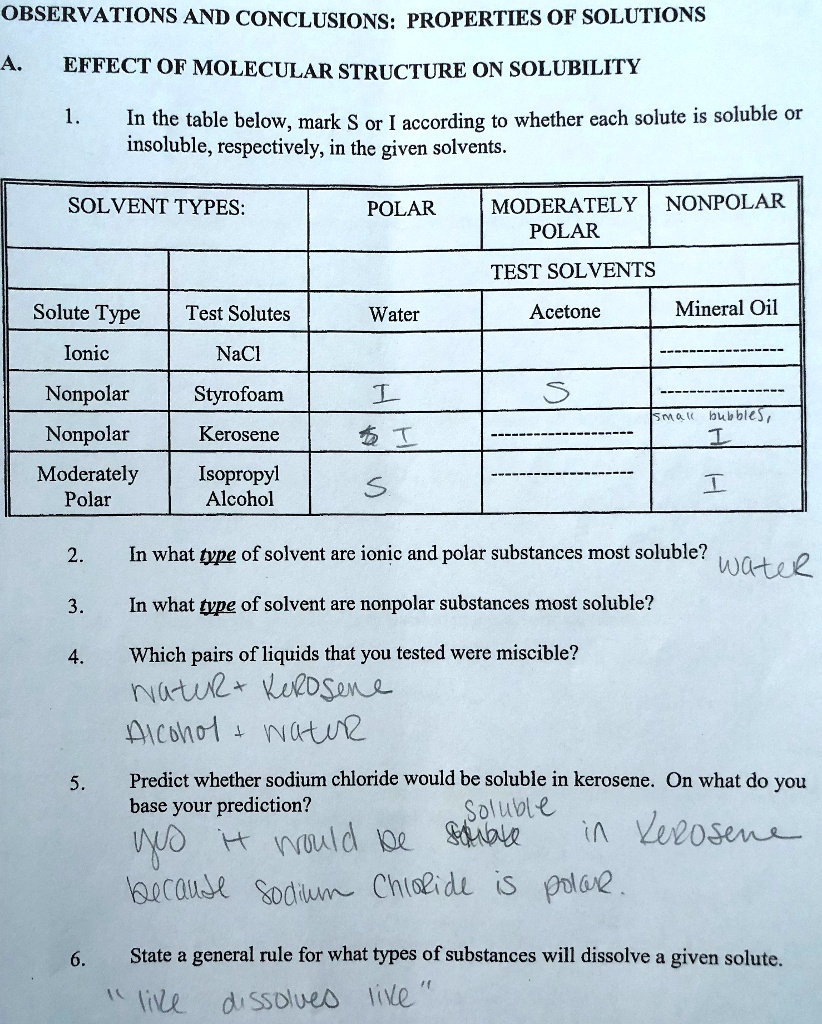 OBSERVATIONS AND CONCLUSIONS: PROPERTIES OF SOLUTIONS
A. EFFECT OF MOLECULAR STRUCTURE ON SOLUBILITY
1. In the table below, mark S or I according to whether each solute is soluble or
insoluble, respectively, in the given solvents.
SOLVENT TYPES: POLAR MODERATELY POLAR NONPOLAR
TEST SOLVENTS
Solute Type Test Solutes Water Acetone Mineral Oil
Ionic NaCl --------------------
Nonpolar Styrofoam I S --------------------
Nonpolar Kerosene I -------------------- small bubbles, I
Moderately Polar Isopropyl Alcohol S -------------------- I
2. In what type of solvent are ionic and polar substances most soluble? water
3. In what type of solvent are nonpolar substances most soluble?
4. Which pairs of liquids that you tested were miscible?
water + kerosene
Alcohol + water
5. Predict whether sodium chloride would be soluble in kerosene. On what do you
base your prediction?
yes it would be soluble in kerosene
because sodium chloride is polar.
6. State a general rule for what types of substances will dissolve a given solute.
"like dissolves like"